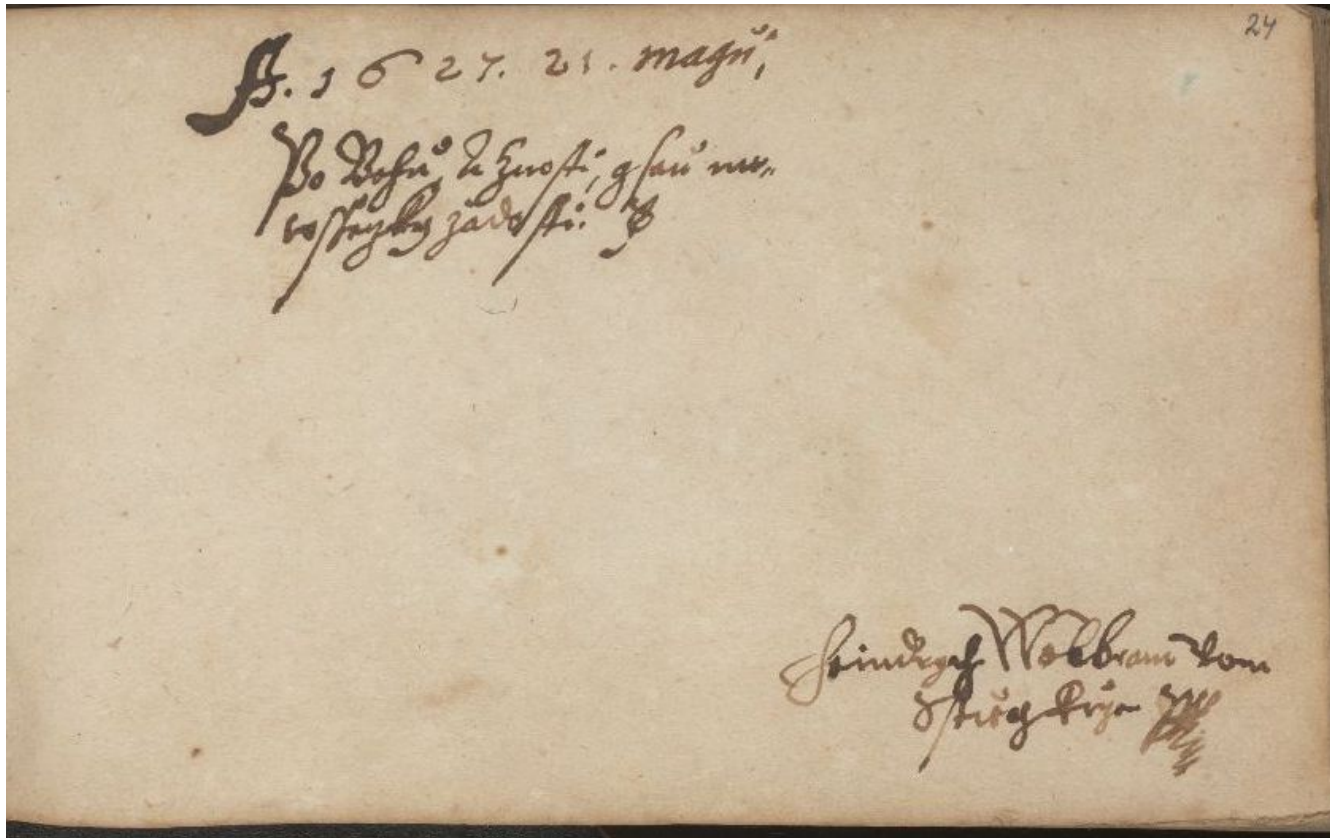 24
A. 1627. 21. magii,
Po Bohu, k Cznosti, gsau me„
wsseczky žadosti.
Heindrych Wolbram vom